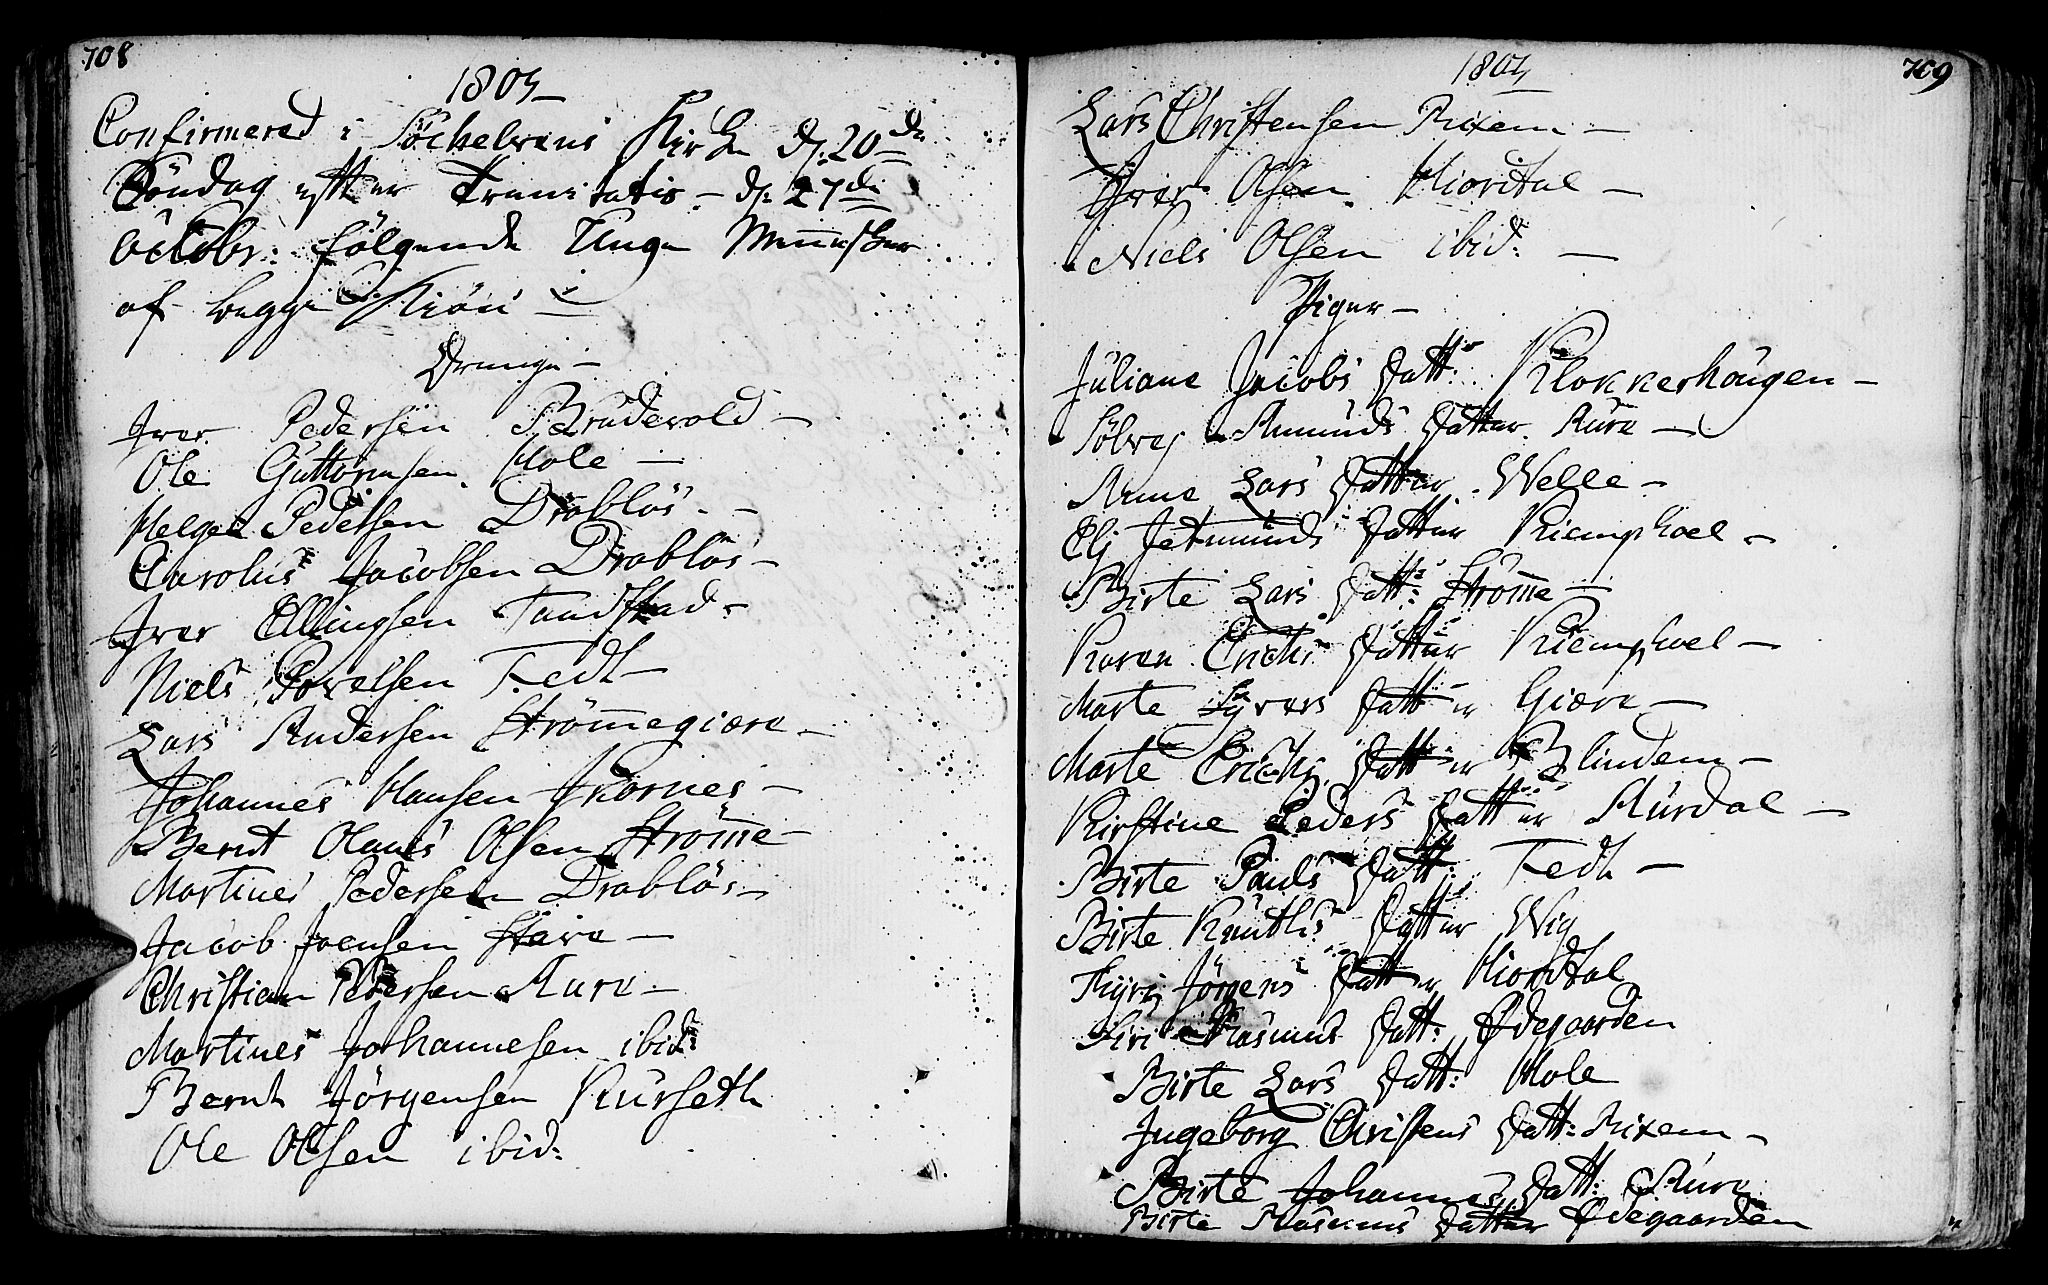 708
1805
Confirmered i Söchelvens Kirke d. 20de
Söndag efter Trinitatis - d: 27de
Octobr: følgende Unge Mennesker
af begge Kiön -
Drenge -
Iver Pedersen Brudevold -
Ole Guttormsen Hole -
Helge Pedersen Drabløs -
Carolus Jacobsen Drabløs -
Iver Ellingsen Tandstad -
Niels Povelsen Fedt -
Lars Andersen Strömmegiære -
Johannes Hansen Ikornes -
Bernt Olaus Olsen Strömme -
Martines Pedersen Drabløs -
Jacob Joensen Stave -
Christian Pedersen Aure -
Martines Johannesen ibid:
Bernt Jörgensen Kurseth
Ole Olsen ibid:
709
1805
Lars Christensen Rixem -
Iver Olsen Hiortdal -
Niels Olsen ibid: -
Piger -
Juliane Jacobs Datt: Klokkerhougen -
Sölvej Amunds Datter Aure -
Anne Lars Datter Welle -
Elj Jetmunds Datter Kiemphoel -
Birte Lars Datt: Strömme -
Karen Erichs Datter Kiemphoel -
Marte Syvers Datter Giære -
Marte Erichs Datter Blindem -
Kirstine Peders Datter Murdal -
Birte Pauls Datt: Fedt -
Birte Knuths Datter Wig
Jörgens Datter Hiortdal
Siri Rasmus Datt: Ødegaarden
Birte Lars Datt: Hole
Ingeborg Christens Datt: Rixem -
Birte Johannes Datt: Aure
Birte Rasmus Datter Ødegaarden